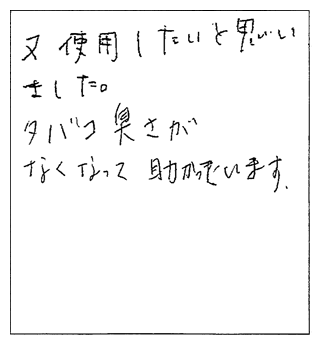 又使用したいと思い
ました。
タバコ臭さが
なくなって助かっています.